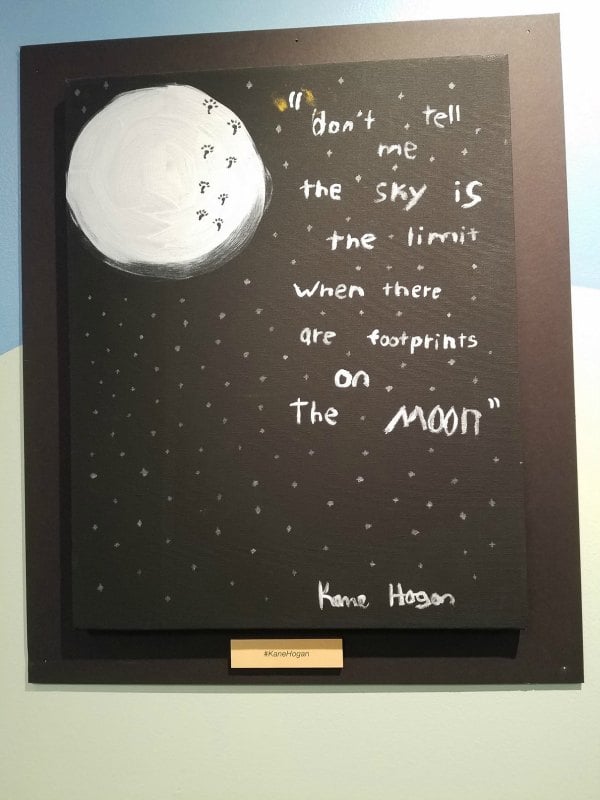 "don't tell
me
the sky is
the limit
When there
are footprints
on
The MOON"
Kane Hogan
#KaneHogan